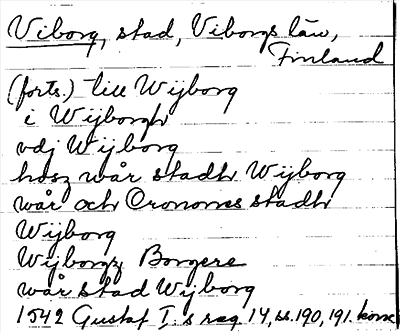 Viborg, stad, Viborgs län,
Finland
(forts.) till Wijborg
i Wijborgh
vdj Wijborg
hosz wår stadh Wijborg
wår och Cronones stadh
Wijborg
Wijborgz Borgere
wår stad Wijborg
1542 Gustaf I:s reg. 14, ss. 190, 191. konc